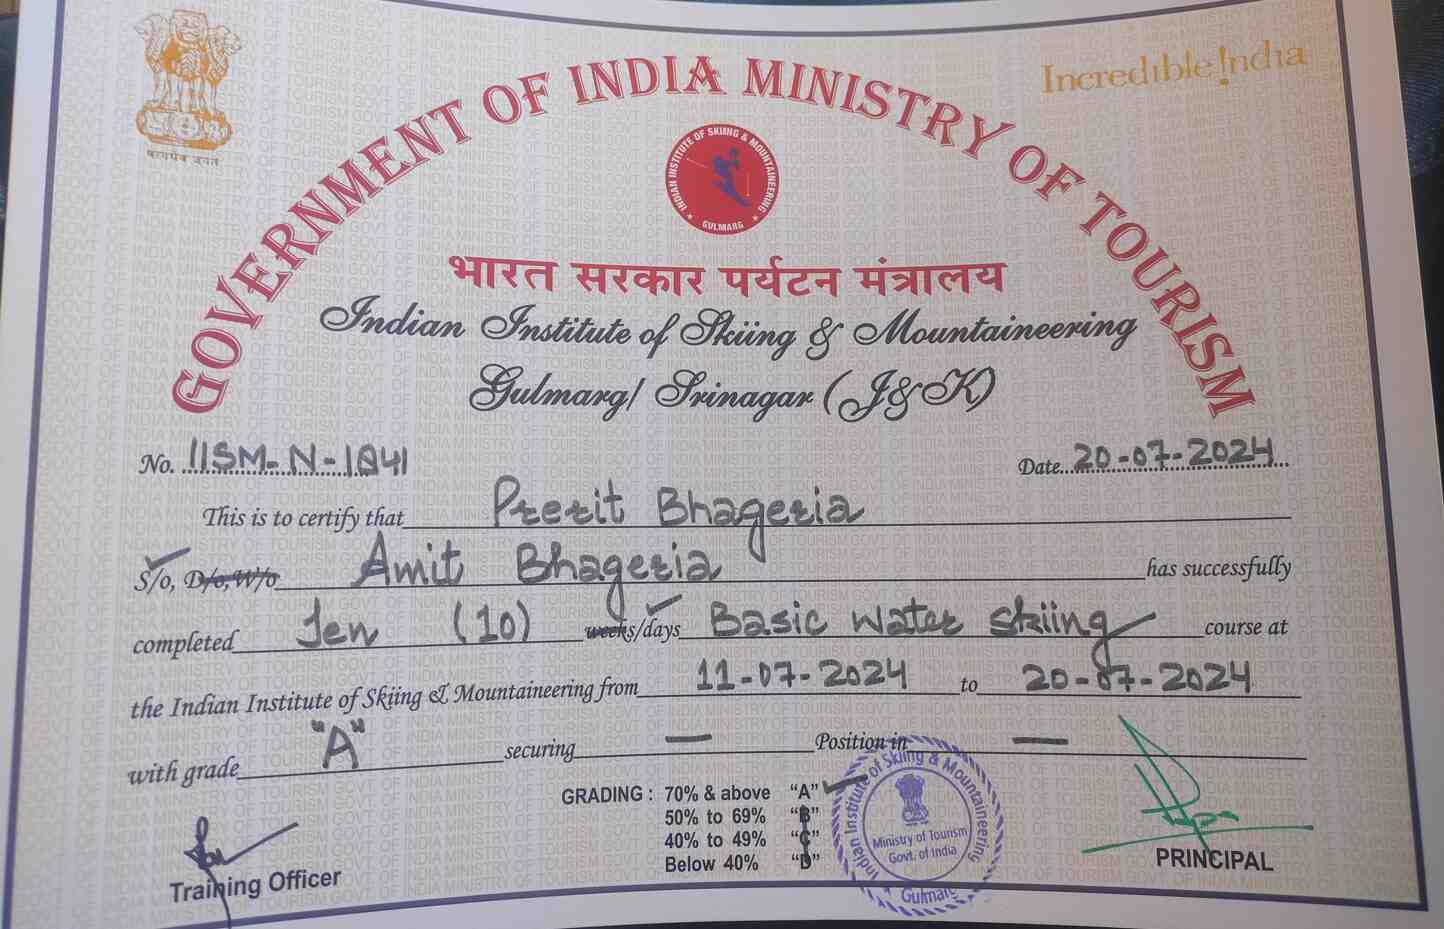 Incredible !ndia
सत्यमेव जयते
GOVERNMENT OF INDIA MINISTRY OF TOURISM
INDIAN INSTITUTE OF SKIING & MOUNTAINEERING
GULMARG
भारत सरकार पर्यटन मंत्रालय
Indian Institute of Skiing & Mountaineering
Gulmarg/ Srinagar (J&K)
No. IISM-N-1841 Date 20-07-2024
This is to certify that Prerit Bhageria
S/o, D/o, W/o Amit Bhageria has successfully
completed Ten (10) weeks/days Basic Water Skiing course at
the Indian Institute of Skiing & Mountaineering from 11-07-2024 to 20-07-2024
with grade "A" securing — Position in —
GRADING : 70% & above "A"
50% to 69% "B"
40% to 49% "C"
Below 40% "D"
Indian Institute of Skiing & Mountaineering
Ministry of Tourism
Govt. of India
Gulmarg
Training Officer
PRINCIPAL